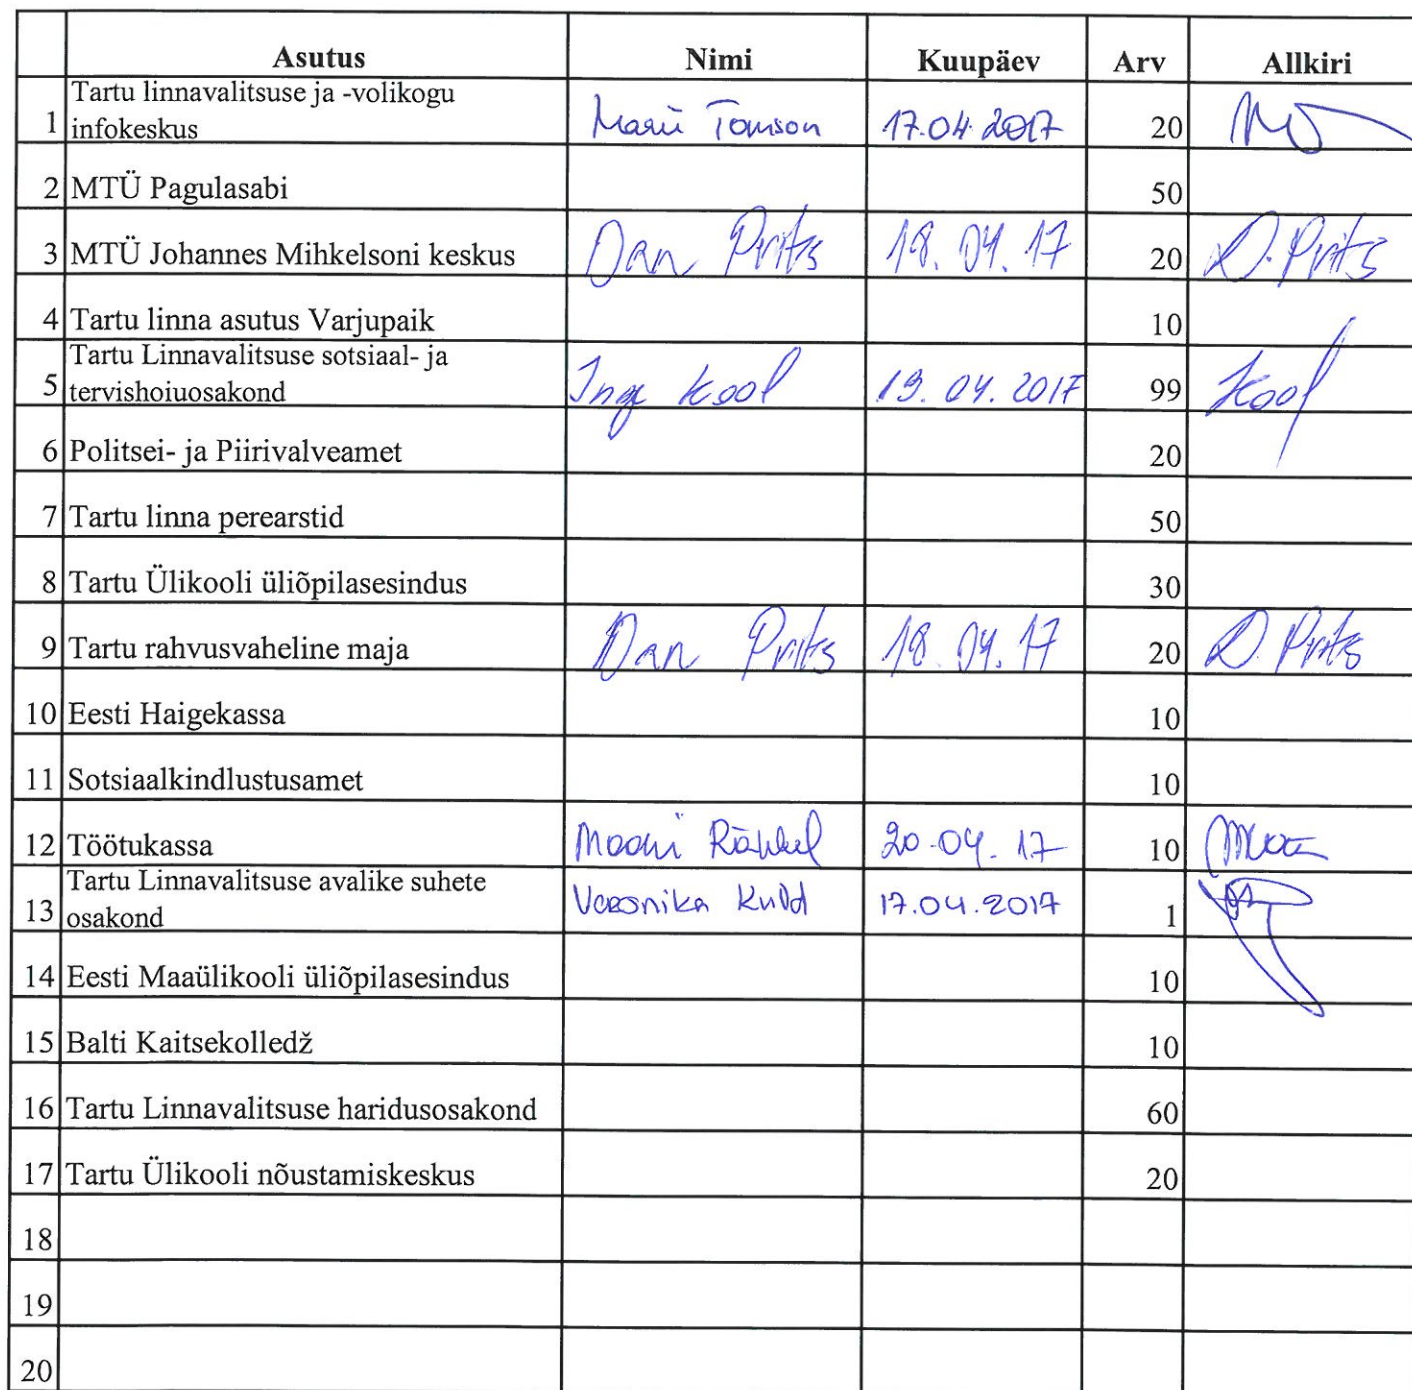 Asutus Nimi Kuupäev Arv Allkiri
Tartu linnavalitsuse ja -volikogu
1 infokeskus Marii Tomson 17.04.2017 20
2 MTÜ Pagulasabi 50
3 MTÜ Johannes Mihkelsoni keskus Dan Prits 18.04.17 20 D. Prits
4 Tartu linna asutus Varjupaik 10
Tartu Linnavalitsuse sotsiaal- ja
5 tervishoiuosakond Inge Kool 19.04.2017 99 Kool
6 Politsei- ja Piirivalveamet 20
7 Tartu linna perearstid 50
8 Tartu Ülikooli üliõpilasesindus 30
9 Tartu rahvusvaheline maja Dan Prits 18.04.17 20 D. Prits
10 Eesti Haigekassa 10
11 Sotsiaalkindlustusamet 10
12 Töötukassa 20.04.17 10
Tartu Linnavalitsuse avalike suhete
13 osakond Veronika 17.04.2017 1
14 Eesti Maaülikooli üliõpilasesindus 10
15 Balti Kaitsekolledž 10
16 Tartu Linnavalitsuse haridusosakond 60
17 Tartu Ülikooli nõustamiskeskus 20
18
19
20